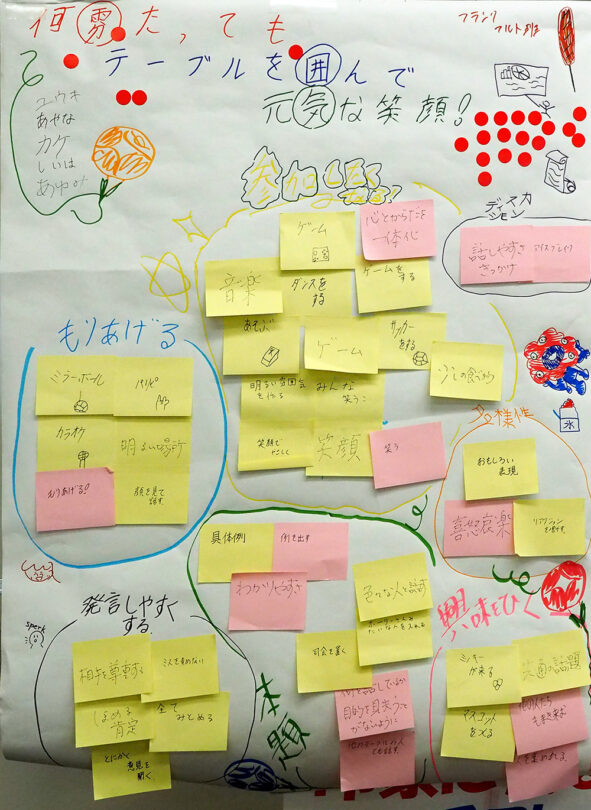 何雰たっても
テーブルを囲んで
元気な笑顔!
フランク
フルト班
ユウキ
あやな
カケ
しいは
あゆみ
参加したく
ディスカ
ッション
話しやすさ
きっかけ
アイスブレイク
ゲーム
心とからだを
一体化
音楽
ダンスを
する
ゲームを
する
あそぶ
ゲーム
サッカー
をする
明るい雰囲気
を作る
みんな
笑う
笑顔で
笑顔
笑う
もりあげる
ミラーボール
カラオケ
明るい場所
もりあげる!
顔を見て
話す
多様性
おもしろい
表現
喜怒哀楽
リアクション
本題
具体例
例を出す
わかりやすさ
色々な人と話す
司会を置く
目的を見失う
発言しやすく
する
相手を尊重する
ミスを責めない
ほめる
肯定
全て
みとめる
とにかく
意見を
聞く
speak
興味をひく
ミッキー
が来る
共通の話題
マスコット
を
氷